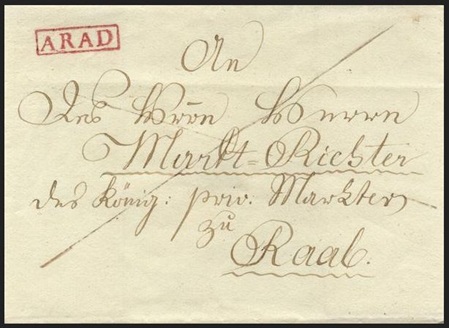 ARAD
An
Des Hrn Herrn
Markt=Richter
des König: priv. Markten
zu
Raab.